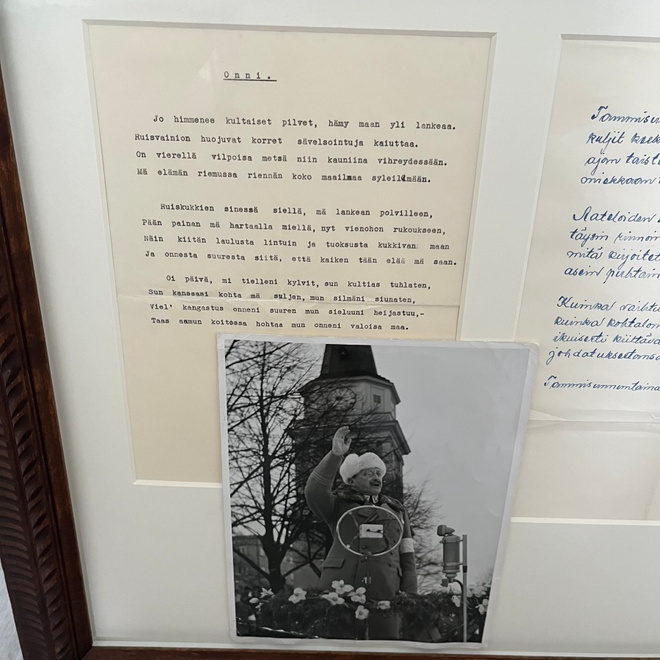 Onni.
Jo himmenee kultaiset pilvet, hämy maan yli lankeaa.
Ruisvainion huojuvat korret sävelsointuja kaiuttaa.
On vierellä vilpoisa metsä niin kauniina vihreydessään.
Mä elämän riemussa riennän koko maailmaa syleilemään.
Ruiskukkien sinessä siellä, mä lankean polvilleen,
Pään painan mä hartaalla miellä, nyt vienohon rukoukseen,
Näin kiitän laulusta lintuin ja tuoksusta kukkivan maan
Ja onnesta suuresta siitä, että kaiken tään elää mä saan.
Oi päivä, mi tielleni kylvit, sun kultias tuhlaten,
Sun kanssasi kohta mä suljen, mun silmäni siunaten,
Viel' kangastus onneni suuren mun sieluuni heijastuu,-
Taas aamun koitossa hohtaa mun onneni valoisa maa.
kuljit
ajan
miekkaan
Aateloiden
täysin
mitä kirjoitet
asein puhtain
Kuinka
kuinka kohtalon
ikuisesti kiittävä
johdatuksestansa